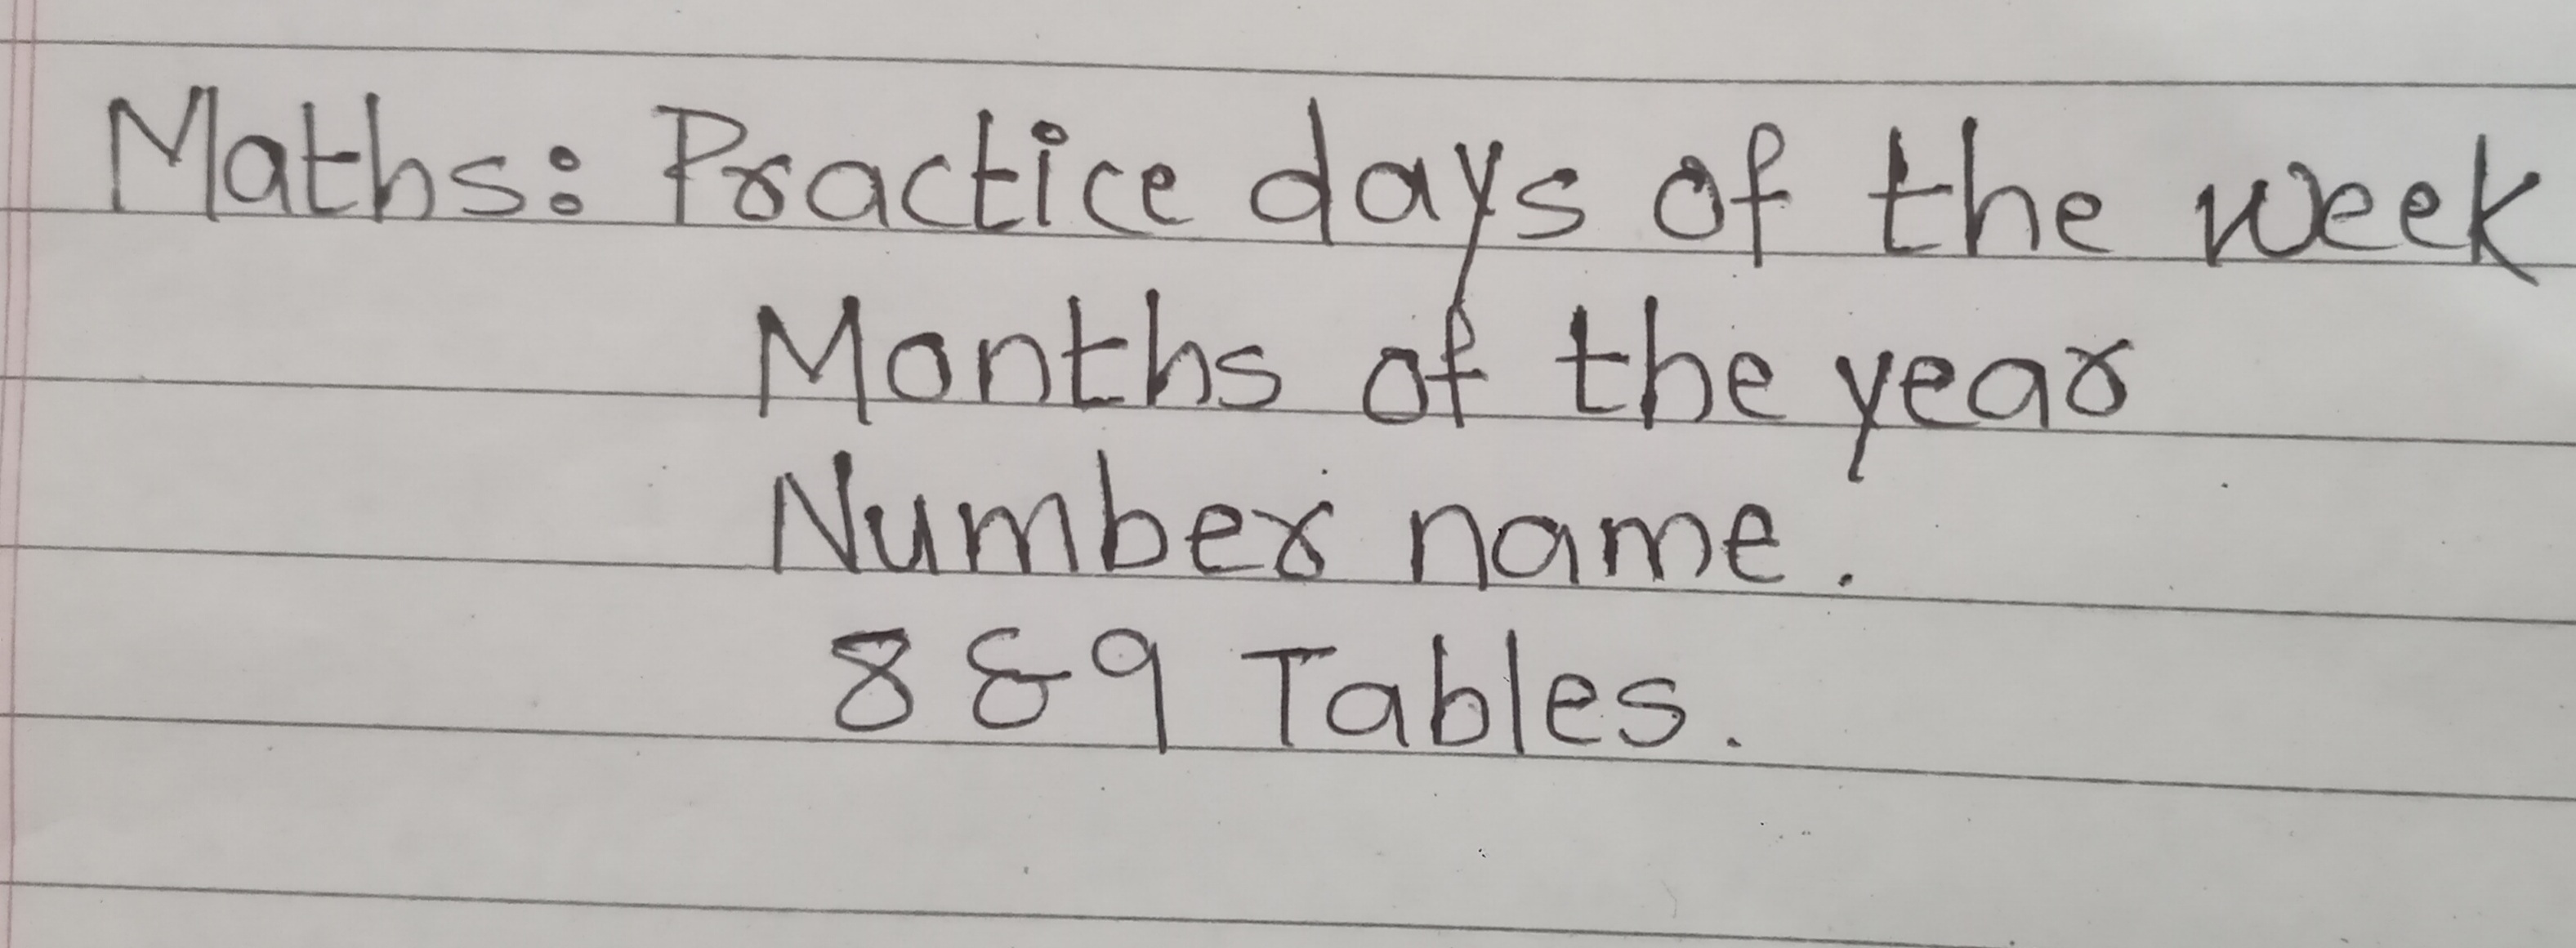 Maths: Practice days of the week
Months of the year
Number name.
8 & 9 Tables.